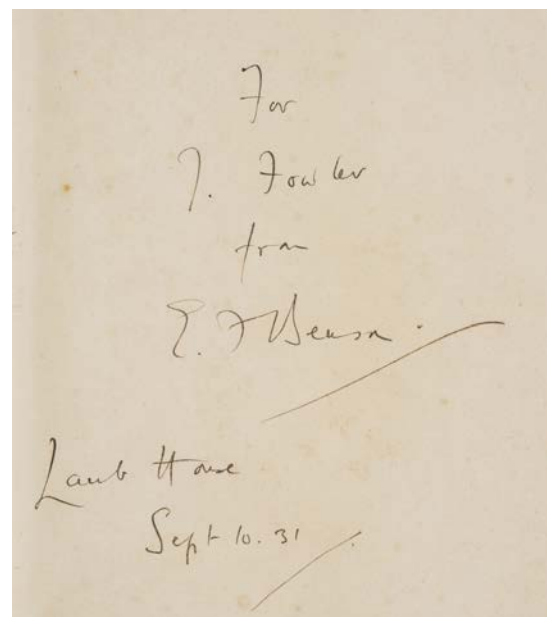 For
J. Fowler
from
E. F Benson.
Lamb House
Sept 10. 31